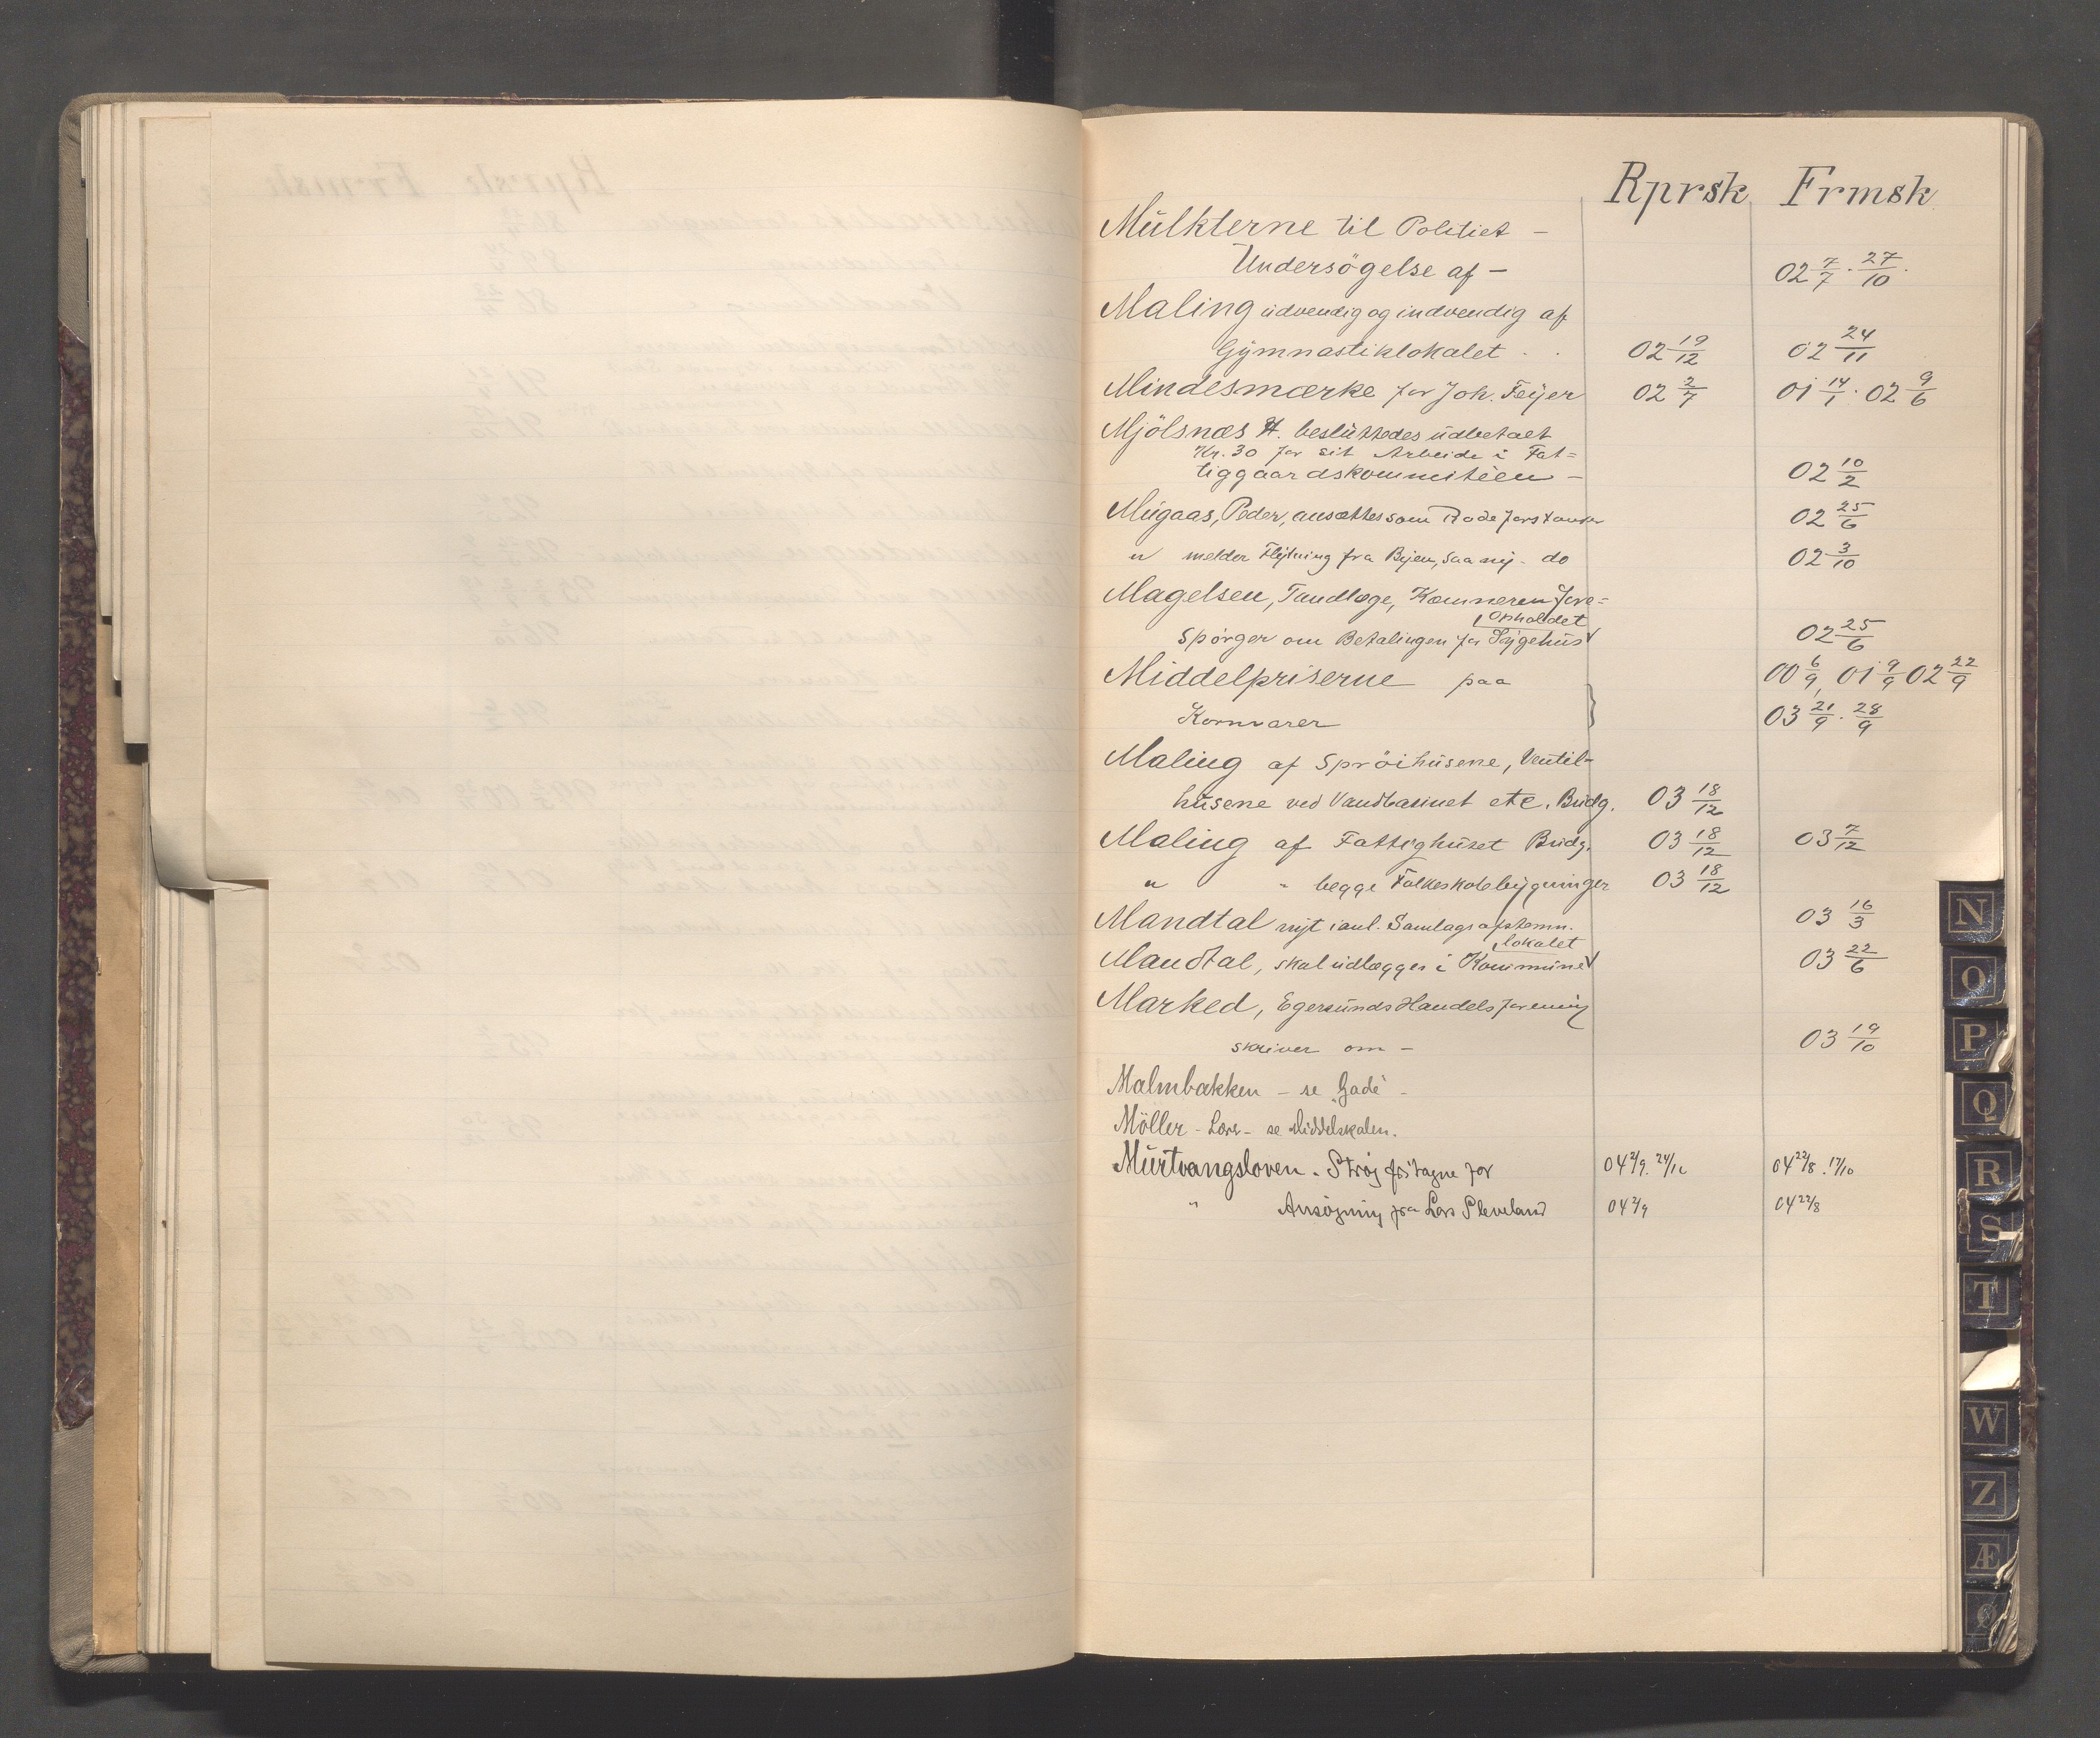 Rprsk Frmsk
Mülkterne til Politiet –
Undersögelse af – 02 7/7 · 27/10
Maling üdvendig og indvendig af
Gymnastiklokalet . . 02 19/12 02 24/11
Mindesmærke for Joh. Feyer 02 2/7 01 14/1 · 02 9/6
Mjölsnæs H. beslüttedes üdbetalt
Kr. 30 for sit Arbeide i Fat=
tiggaardskommiteen – 02 10/2
Mügaas, Peder, ansættes som Rodeforstander 02 25/6
" melder Flytning fra Byen, saa ny do 02 3/10
Magelsen, Tandlæge, Kæmneren fore=
Opholdet
spørger om Betalingen for Sygehüs 02 25/6
Middelpriserne paa 00 6/9, 01 9/9 02 22/9
Kornvarer 03 21/9 · 28/9
Maling af Spröihüsene, Ventil-
hüsene ved Vandbasinet etc. Büdg. 03 18/12
Maling af Fattighüset Büdg. 03 18/12 03 7/12
" " begge Folkeskolebygninger 03 18/12
Mandtal nyt i anl. Samlagsafstemn. 03 16/3
lokalet
Mandtal, skal üdlægges i Kommüne 03 22/6
Marked, Egersünds Handelsforening
skriver om – 03 19/10
Malmbakken – se "Gade" –
Möller – Lars – se Middelskolen.
Mürtvangsloven. Strøg fritagne for 04 2/9. 24/11 04 22/8. 17/10
" Ansøgning fra Lars Pleveland 04 2/9 04 22/8
N
O
P
Q
R
S
T
W
Z
Æ
Ø